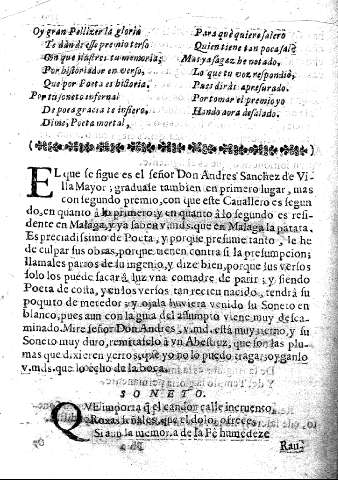 Oy gran Pellizer la gloria
Te dan de esse premio terso
Con que ilustres tu memoria;
Por historiador en verso,
Que por Poeta es historia.
Por tu soneto infernal
De poca gracia te infiero,
Dime, Poeta mortal,
Para què quiere salero
Quien tiene tan poca sal?
Mas ya sagaz he notado,
Lo que tu voz respondiò,
Pues diràs apresurado.
Por tomar el premio yo
Hando aora desalado.
EL que se sigue es el señor Don Andres Sanchez de Vi-
lla Mayor; graduase tambien en primero lugar, mas
con segundo premio, con que este Cavallero es segun
do, en quanto à lo primero; y en quanto à lo segundo es resi-
dente en Malaga, y ya saben v.mds. que en Malaga la patata.
Es preciadissimo de Poeta, y porque presume tanto, le he
de culpar sus obras, porque tienen contra si la presumpcion;
llamales partos de su ingenio, y dize bien, porque sus versos
solo los puede sacar à luz vna comadre de parir; y siendo
Poeta de costa, y en los versos tan recien nacido, tendrà su
poquito de metedor; y ojala huviera venido su Soneto en
blanco, pues aun con la guia del assumpto viene muy desca-
minado. Mire señor Don Andres, v.md. està muy tierno, y su
Soneto muy duro, remitaselo à vn Abestruz, que son las plu-
mas que dixieren yerros, que yo no lo puedo tragar, oyganlo
v.mds. que lo echo de la boca.
SONETO.
QVE importa q̃ el candor calle incruento,
Roxas señales, que el dolor ofreces,
Si aun la memoria de la Fè humedeze
Rau-